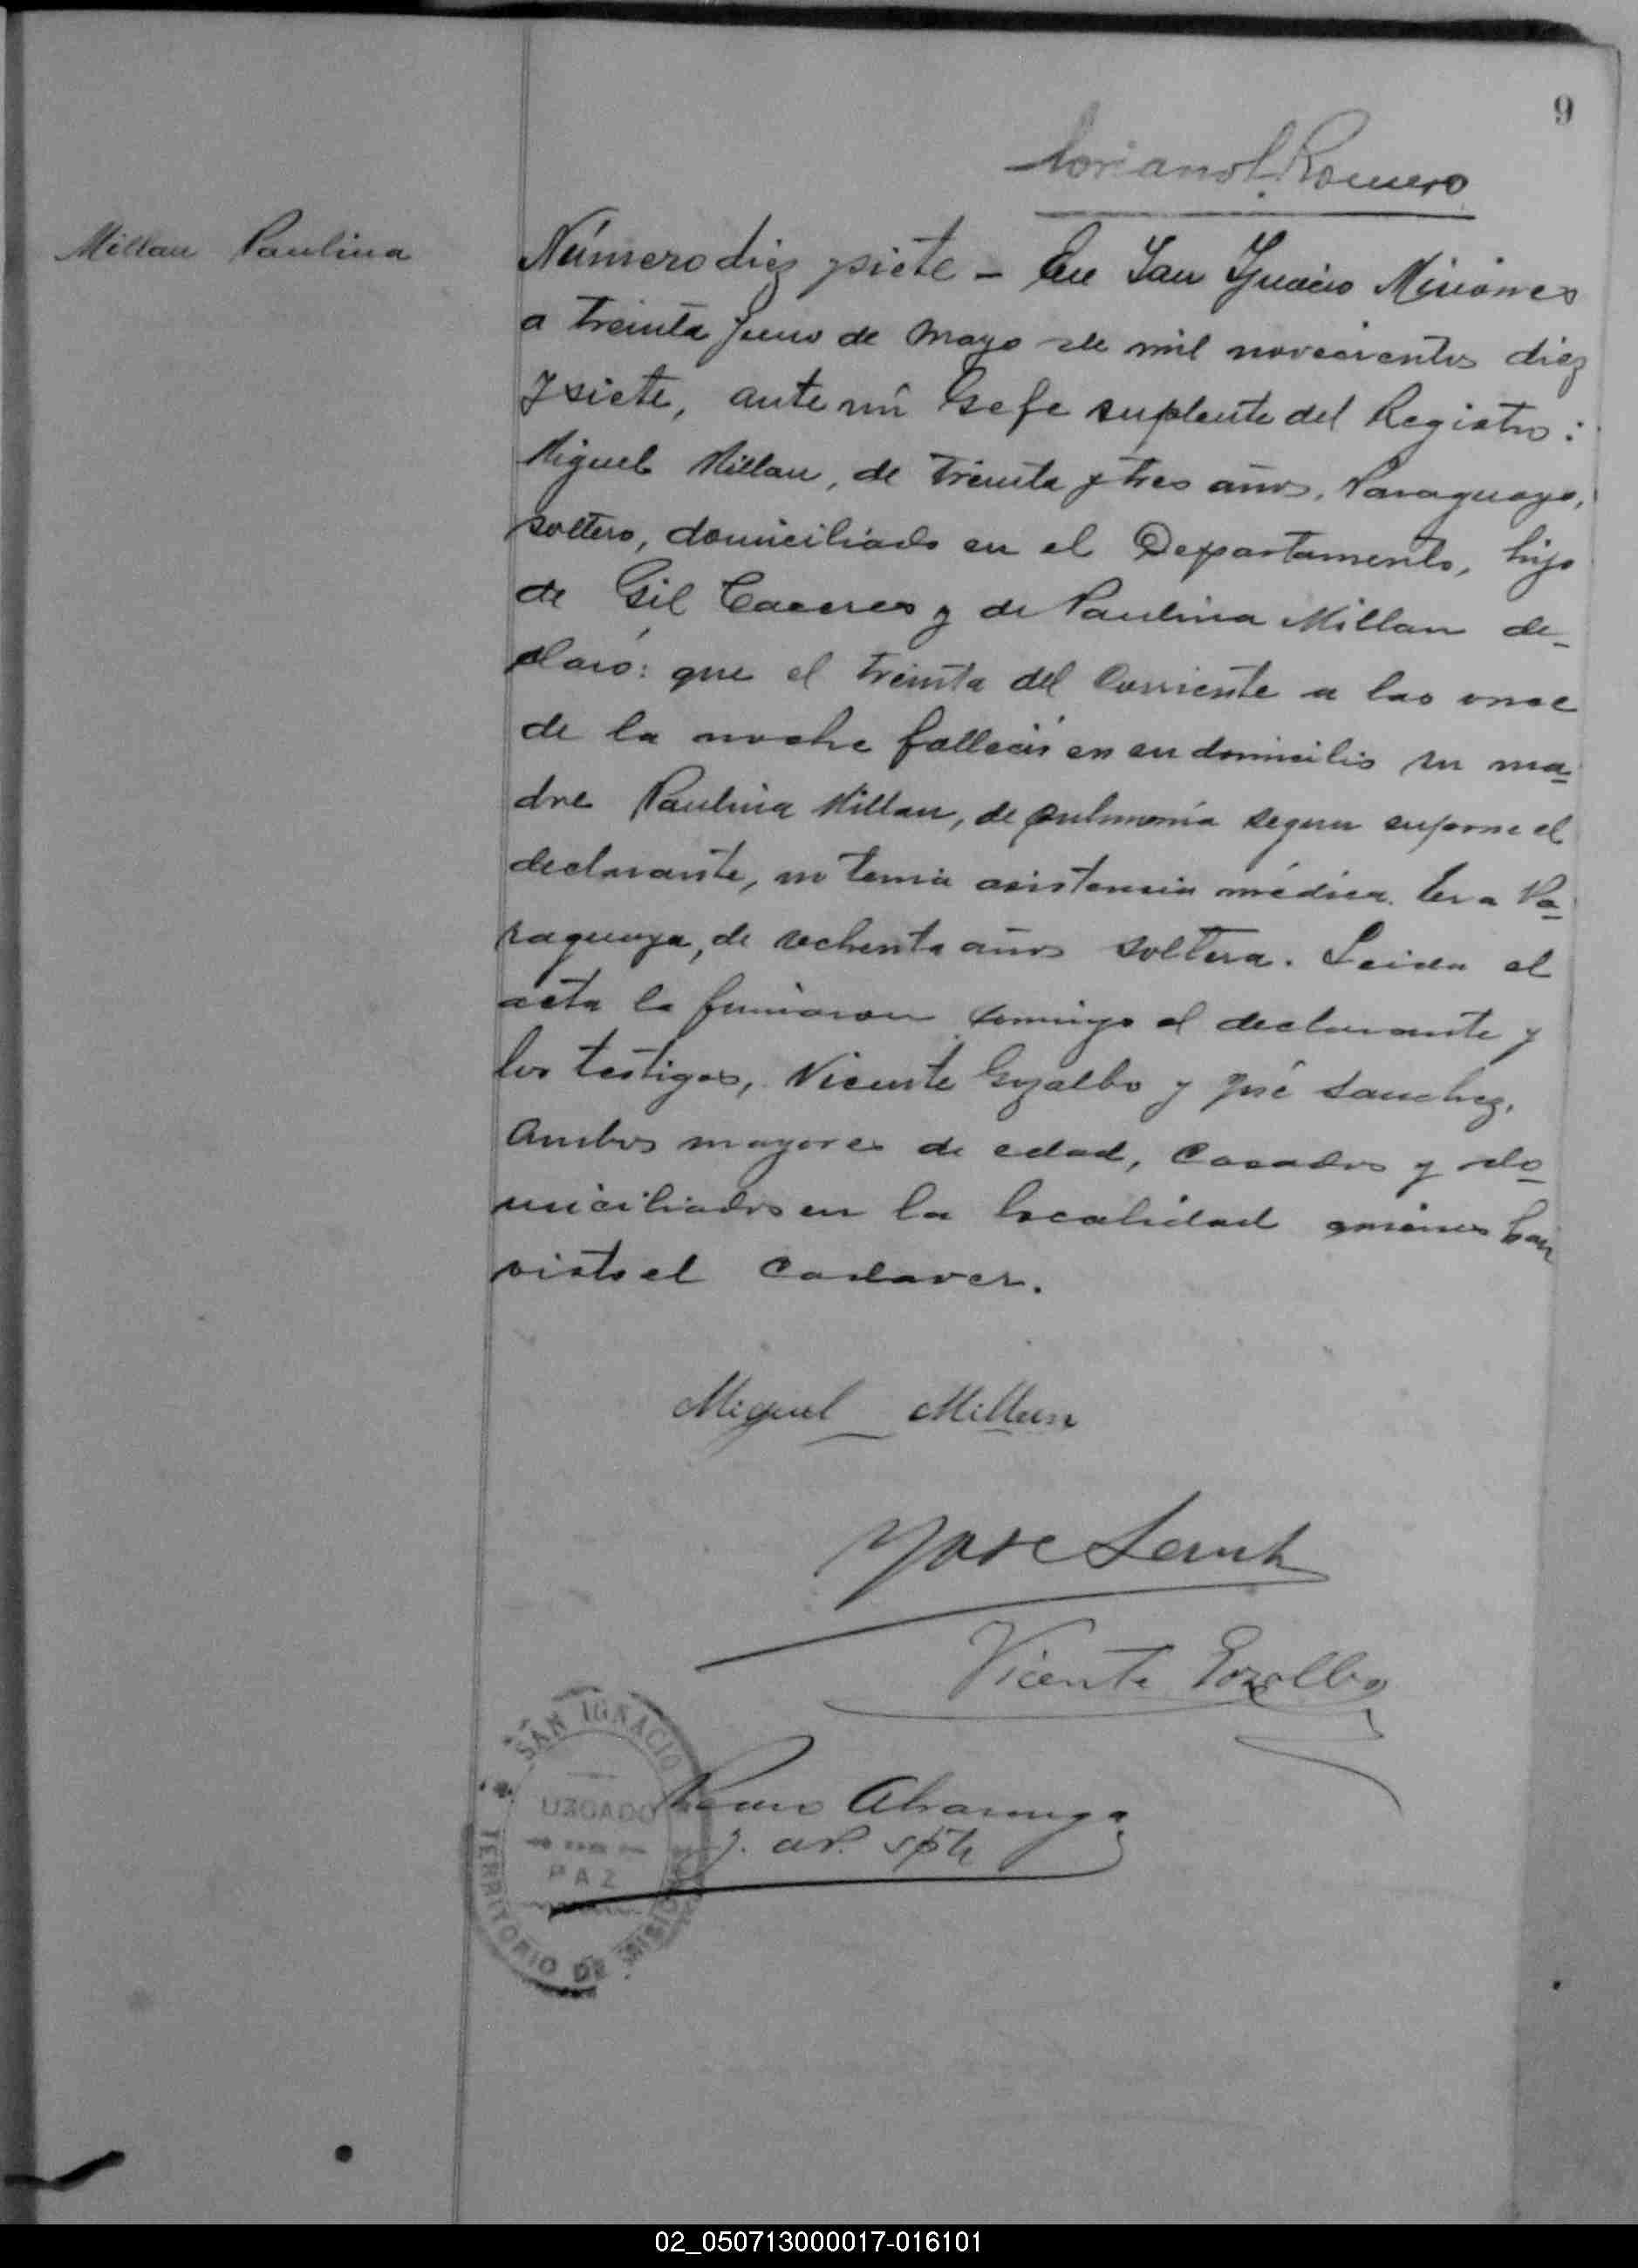 9
Romero
Millan Paulina
Número diez y siete - En San Ygnacio Misiones
a treinta y uno de Mayo de mil novecientos diez
y siete, ante mí Gefe suplente del Registro:
Miguel Millan, de treinta y tres años, Paraguayo,
soltero, domiciliado en el Departamento, hijo
de Gil Caceres y de Paulina Millan de-
claró: que el treinta del corriente a las once
de la noche falleció en su domicilio su ma-
dre Paulina Millan, de pulmonía segun supone el
declarante, no tenia asistencia médica. Era Pa-
raguaya, de ochenta años soltera. Leida el
acta la firmaron conmigo el declarante y
los testigos, Vicente Gozalbo y José Sanchez,
ambos mayores de edad, casados y do-
miciliados en la localidad quienes han
visto el cadaver.
Miguel Millan
Jose Sanch
Vicente Gozalbo
SAN IGNACIO
UZGADO
PAZ
TERRITORIO DE MISIONES
02_050713000017-016101